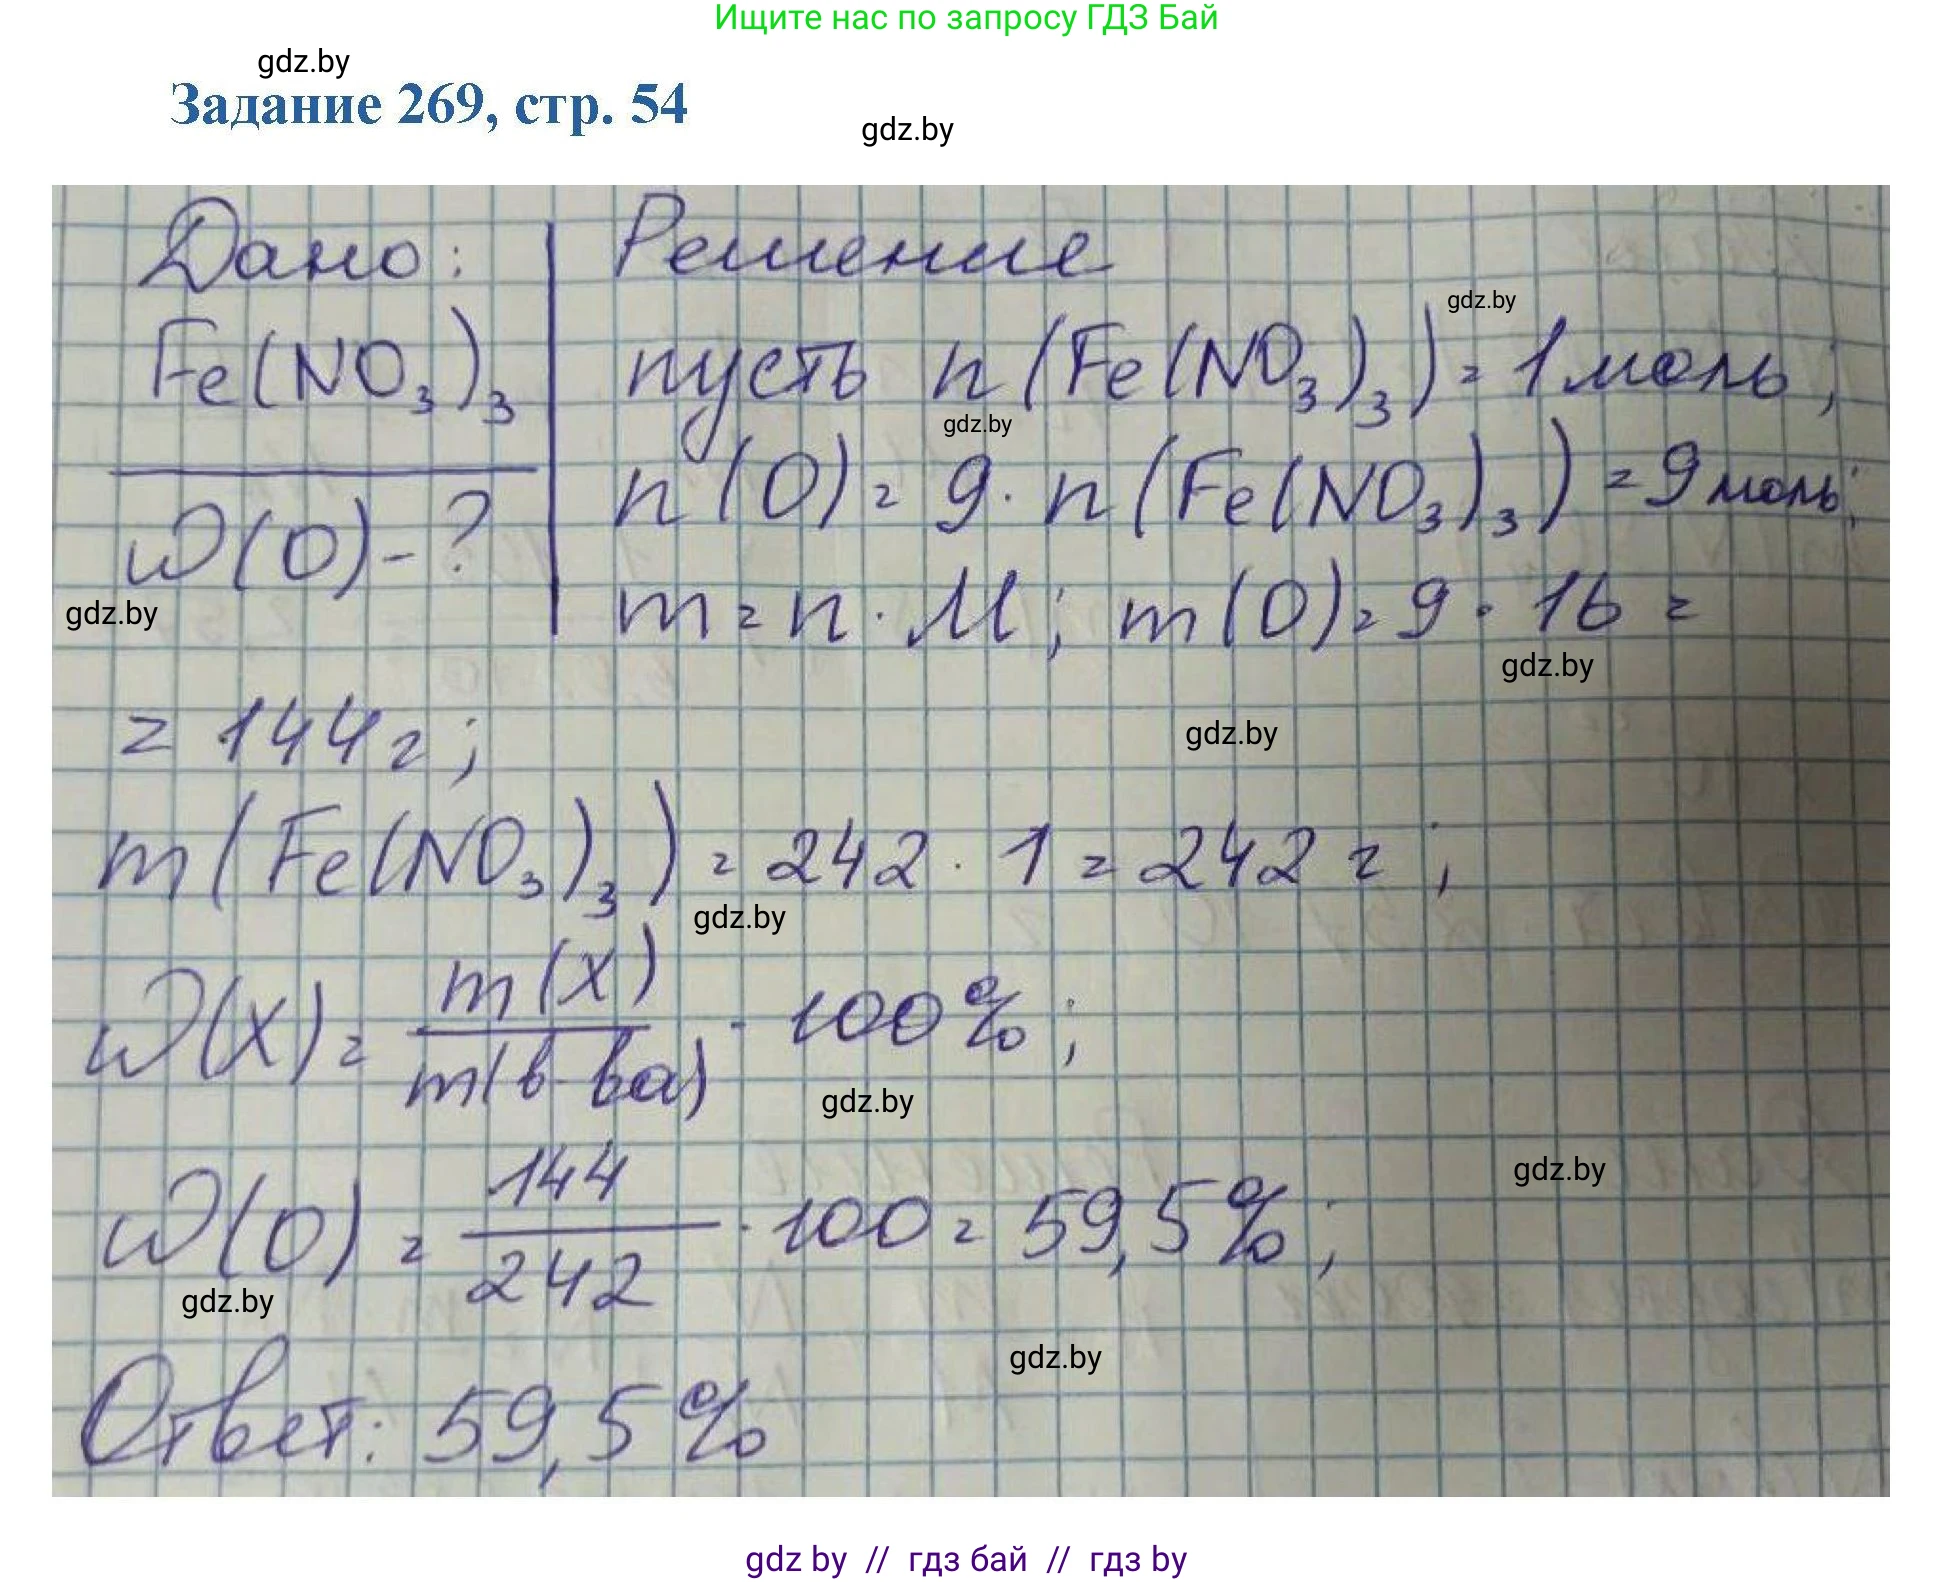 Ищите нас по запросу ГДЗ Бай
gdz.by
Задание 269, стр. 54
gdz.by
Дано: Решение
gdz.by
Fe(NO₃)₃ пусть n(Fe(NO₃)₃) = 1 моль;
gdz.by
n(O) = 9 · n(Fe(NO₃)₃) = 9 моль;
W(O) - ?
m = n · M; m(O) = 9 · 16 =
gdz.by
gdz.by
= 144 г;
gdz.by
m(Fe(NO₃)₃) = 242 · 1 = 242 г;
gdz.by
W(X) = m(X) / m(в-ва) · 100%;
gdz.by
gdz.by
W(O) = 144 / 242 · 100 = 59,5%;
gdz.by
gdz.by
Ответ: 59,5%
gdz by // гдз бай // гдз by